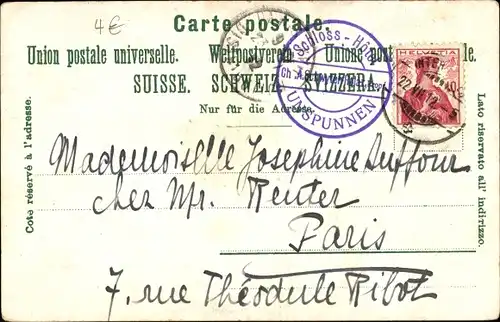 4€
Carte postale.
Union postale universelle. Weltpostverein. Unione postale
SUISSE. SCHWEIZ. SVIZZERA.
Nur für die Adresse.
Schloss-Hôtel
UNSPUNNEN
HELVETIA
10
Côté réservé à l'adresse.
Lato riservato all' indirizzo.
Mademoiselle Josephine Duffour
chez Mr. Reuter
Paris
7, rue Théodule Ribot